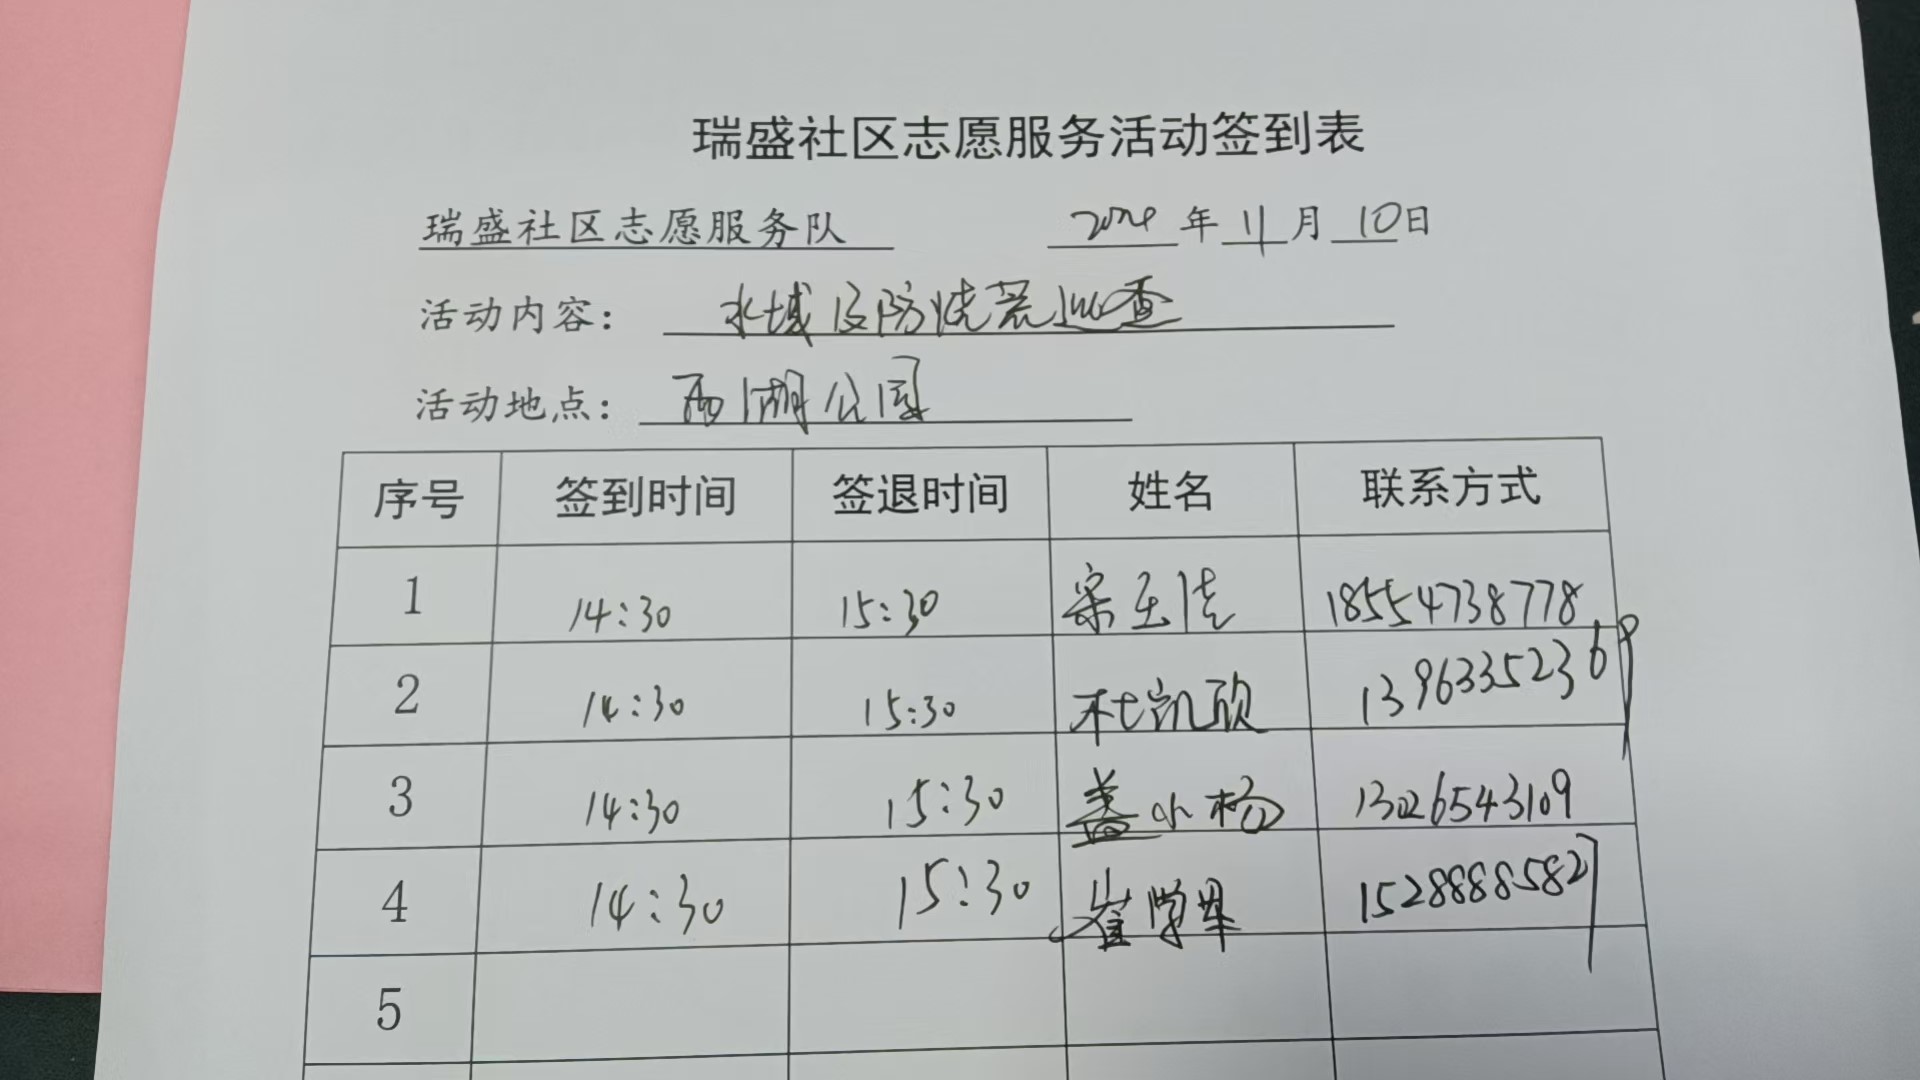 瑞盛社区志愿服务活动签到表
瑞盛社区志愿服务队 2024年11月10日
活动内容: 水域及防烧荒巡查
活动地点: 西湖公园
序号 签到时间 签退时间 姓名 联系方式
1 14:30 15:30 宋玉佳 18554738778
2 14:30 15:30 杜凯欣 13963352369
3 14:30 15:30 盖小杨 13026543109
4 14:30 15:30 崔学军 15288885827
5